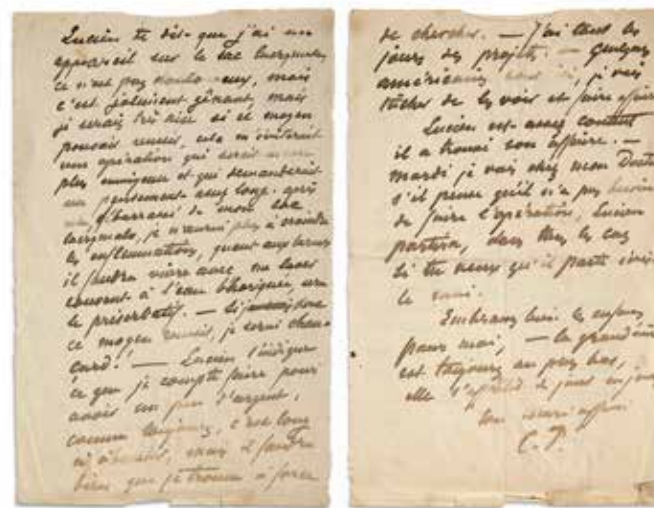 Lucien te dit que j'ai un
appareil sur le sac lacrymal
ce n'est pas douloureux, mais
c'est joliment gênant, mais
je serais très aise si ce moyen
pouvait réussir, cela m'éviterait
une opération qui serait
plus ennuyeuse et qui demanderait
un pansement assez long. après
débarrassé de mon sac
lacrymal, je n'aurai plus à craindre
les inflammations, quant aux larmes
il faudra vivre avec, me laver
souvent à l'eau bhorique,
le préservatif. — Si donc
ce moyen réussit, je serai chan-
card! — Lucien t'indique
ce que je compte faire pour
avoir un peu d'argent,
comme toujours, c'est long
mais il faudra
bien que je trouve à force
de chercher. — J'ai tous les
jours des projets. — Quelques
américains sont ici, je vais
tâcher de les voir et faire affaire
Lucien est assez content
il a trouvé son affaire. —
mardi je vais chez mon Docteur
s'il pense qu'il n'a pas besoin
de faire l'opération, Lucien
partira, dans tous les cas
si tu veux qu'il parte
le
Embrasse bien les enfants
pour moi, — la grand'mère
est toujours au plus bas,
elle s'affaiblit de jour en jour
ton mari affné
C. P.